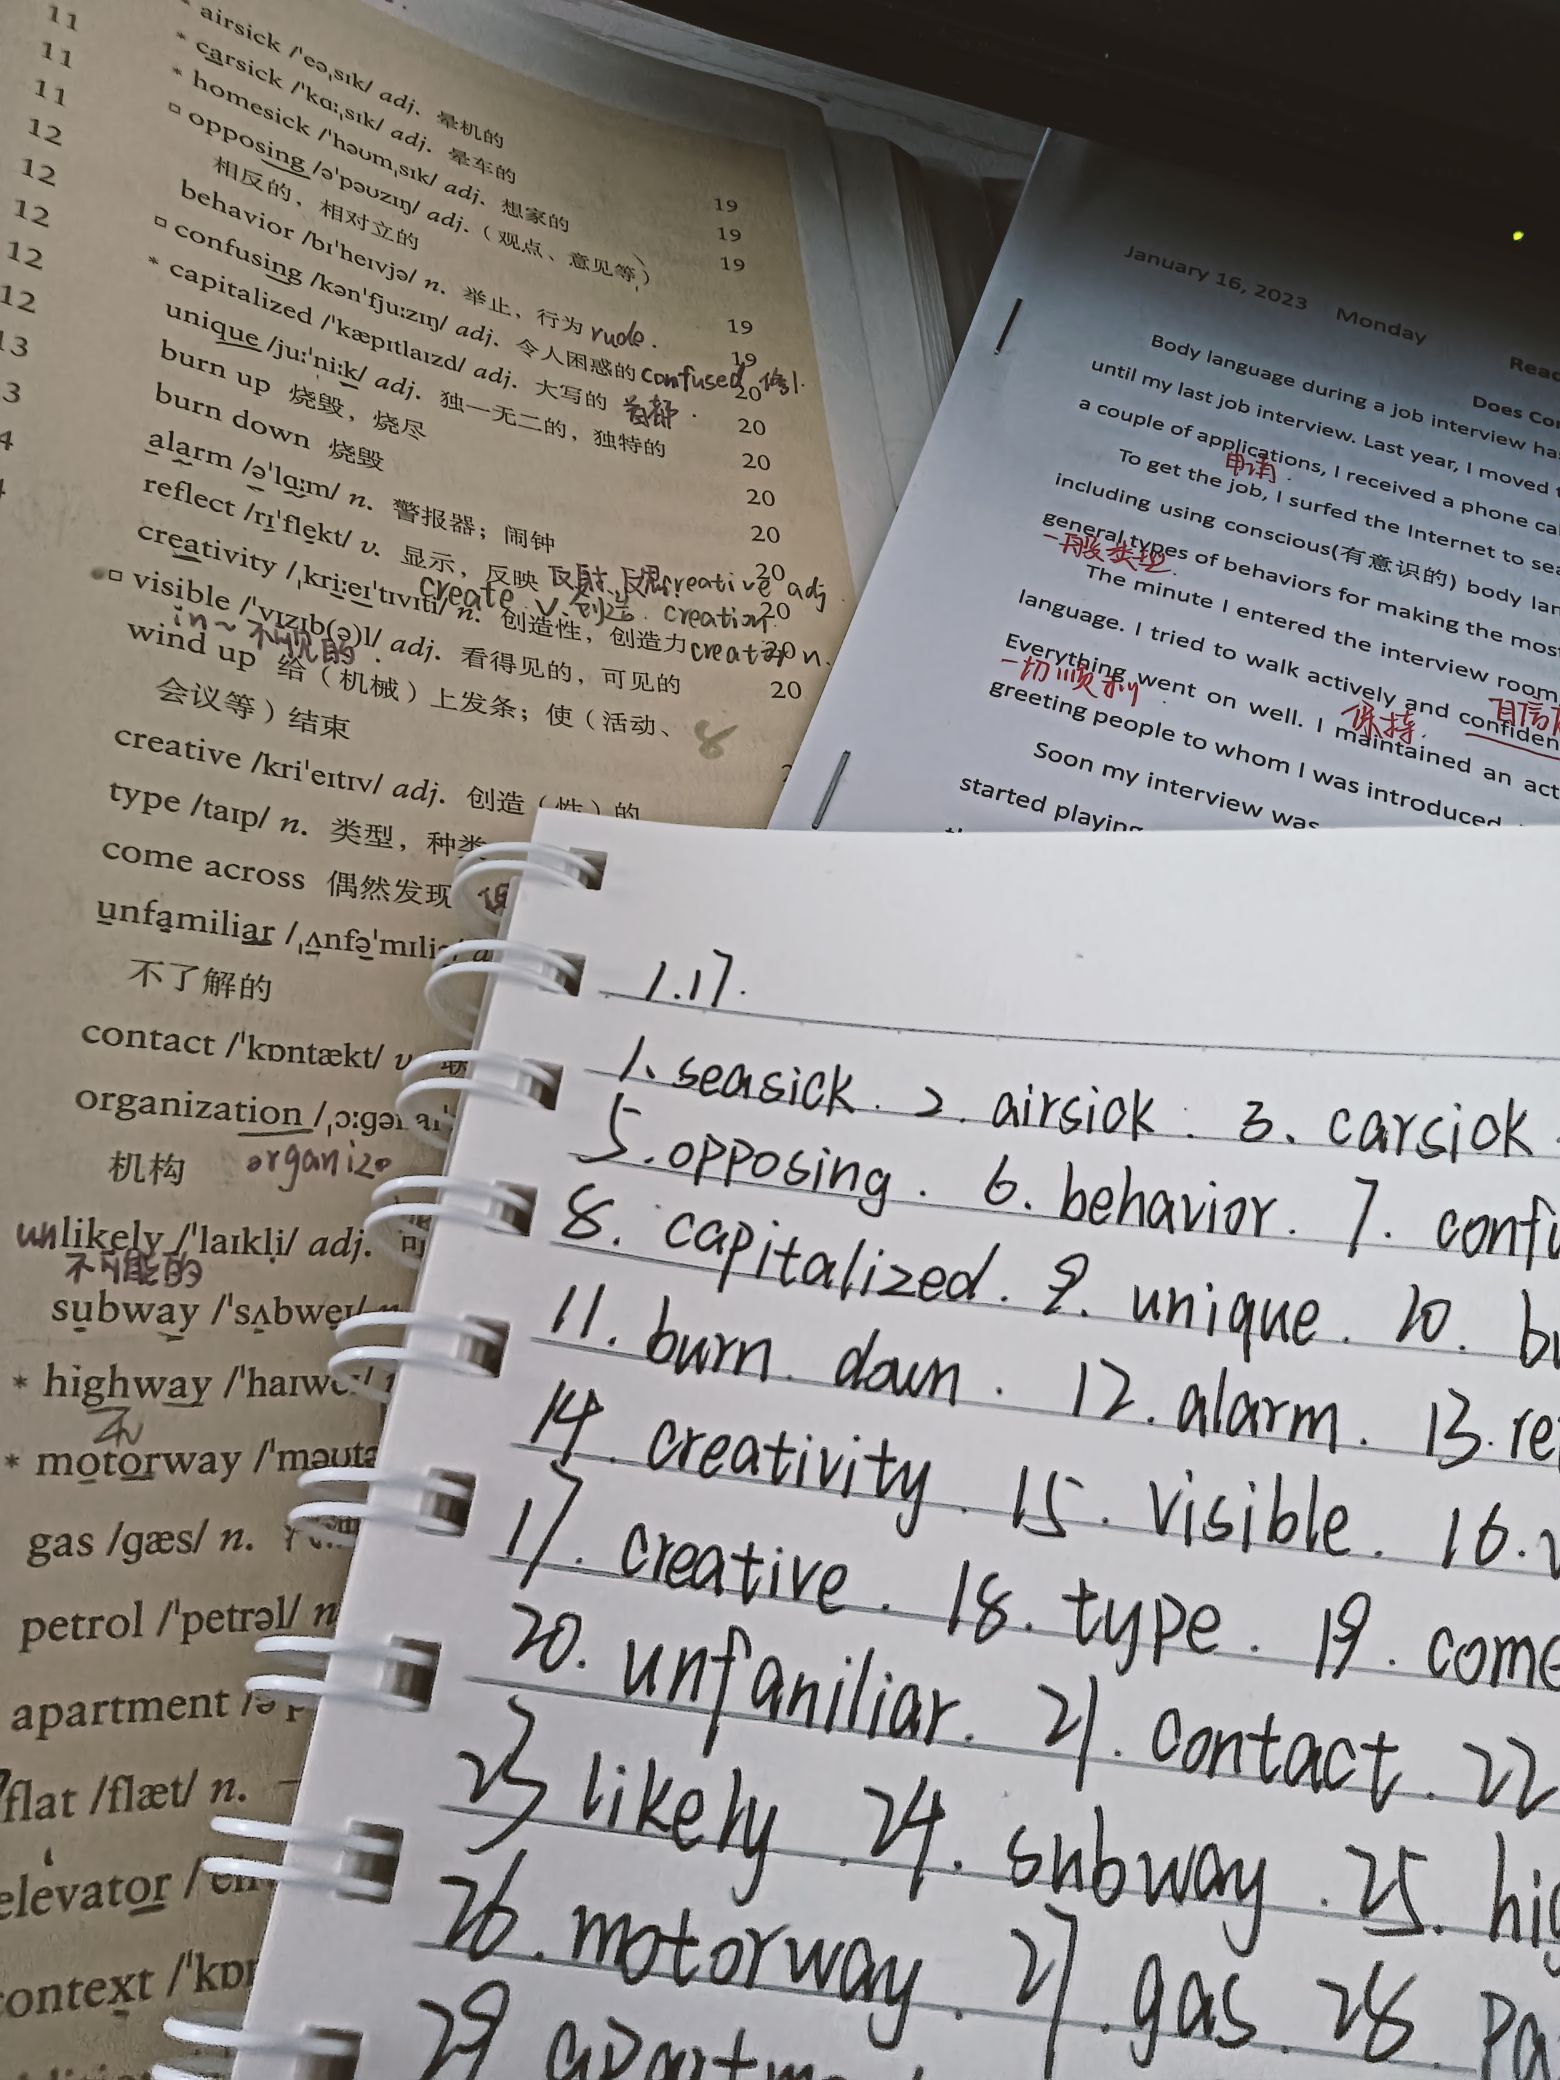 11
11
11
12
12
12
12
12
13
* airsick /ˈeəˌsɪk/ adj. 晕机的
* carsick /ˈkɑːˌsɪk/ adj. 晕车的
* homesick /ˈhəʊmˌsɪk/ adj. 想家的
□ opposing /əˈpəʊzɪŋ/ adj.（观点、意见等）
相反的，相对立的
behavior /bɪˈheɪvjə/ n. 举止，行为 rude.
□ confusing /kənˈfjuːzɪŋ/ adj. 令人困惑的 confused
* capitalized /ˈkæpɪtlaɪzd/ adj. 大写的 首都.
unique /juːˈniːk/ adj. 独一无二的，独特的
burn up 烧毁，烧尽
burn down 烧毁
alarm /əˈlɑːm/ n. 警报器；闹钟
reflect /rɪˈflekt/ v. 显示，反映 反射
creative adj
creativity /ˌkriːeɪˈtɪvɪti/ n. 创造性，创造力 creation n.
create v. 创造.
□ visible /ˈvɪzɪb(ə)l/ adj. 看得见的，可见的
in~ 不可见的.
wind up 给（机械）上发条；使（活动、
会议等）结束
8
creative /kriˈeɪtɪv/ adj. 创造（性）的
type /taɪp/ n. 类型，种类
come across 偶然发现
unfamiliar /ˌʌnfəˈmɪli
不了解的
contact /ˈkɒntækt/ v.
organization /ˌɔːgənaɪ
机构 organize
unlikely /ˈlaɪkli/ adj. 可
不可能的
subway /ˈsʌbweɪ/ n
* highway /ˈhaɪweɪ/
* motorway /ˈməʊtə
gas /gæs/ n. 汽
petrol /ˈpetrəl/ n
apartment /əˈp
flat /flæt/ n. 一
elevator /ˈelɪ
context /ˈkɒn
19
19
19
19
19
20
20
20
20
20
20
20
20
20
January 16, 2023 Monday
Does Con
Body language during a job interview ha
until my last job interview. Last year, I moved t
a couple of applications, I received a phone cal
申请.
To get the job, I surfed the Internet to sea
including using conscious(有意识的) body lan
general types of behaviors for making the most
一般类型.
The minute I entered the interview room,
language. I tried to walk actively and confiden
Everything went on well. I maintained an act
一切顺利 保持.
greeting people to whom I was introduced
Soon my interview was
started playing
1.17.
1. seasick. 2. airsick. 3. carsick.
5. opposing. 6. behavior. 7. confu
8. capitalized. 9. unique. 10. bu
11. burn down. 12. alarm. 13. re
14. creativity. 15. visible. 16.
17. creative. 18. type. 19. come
20. unfaniliar. 21. contact. 22
23 likely. 24. subway. 25. hig
26. motorway. 27. gas. 28. pa
29 apartme